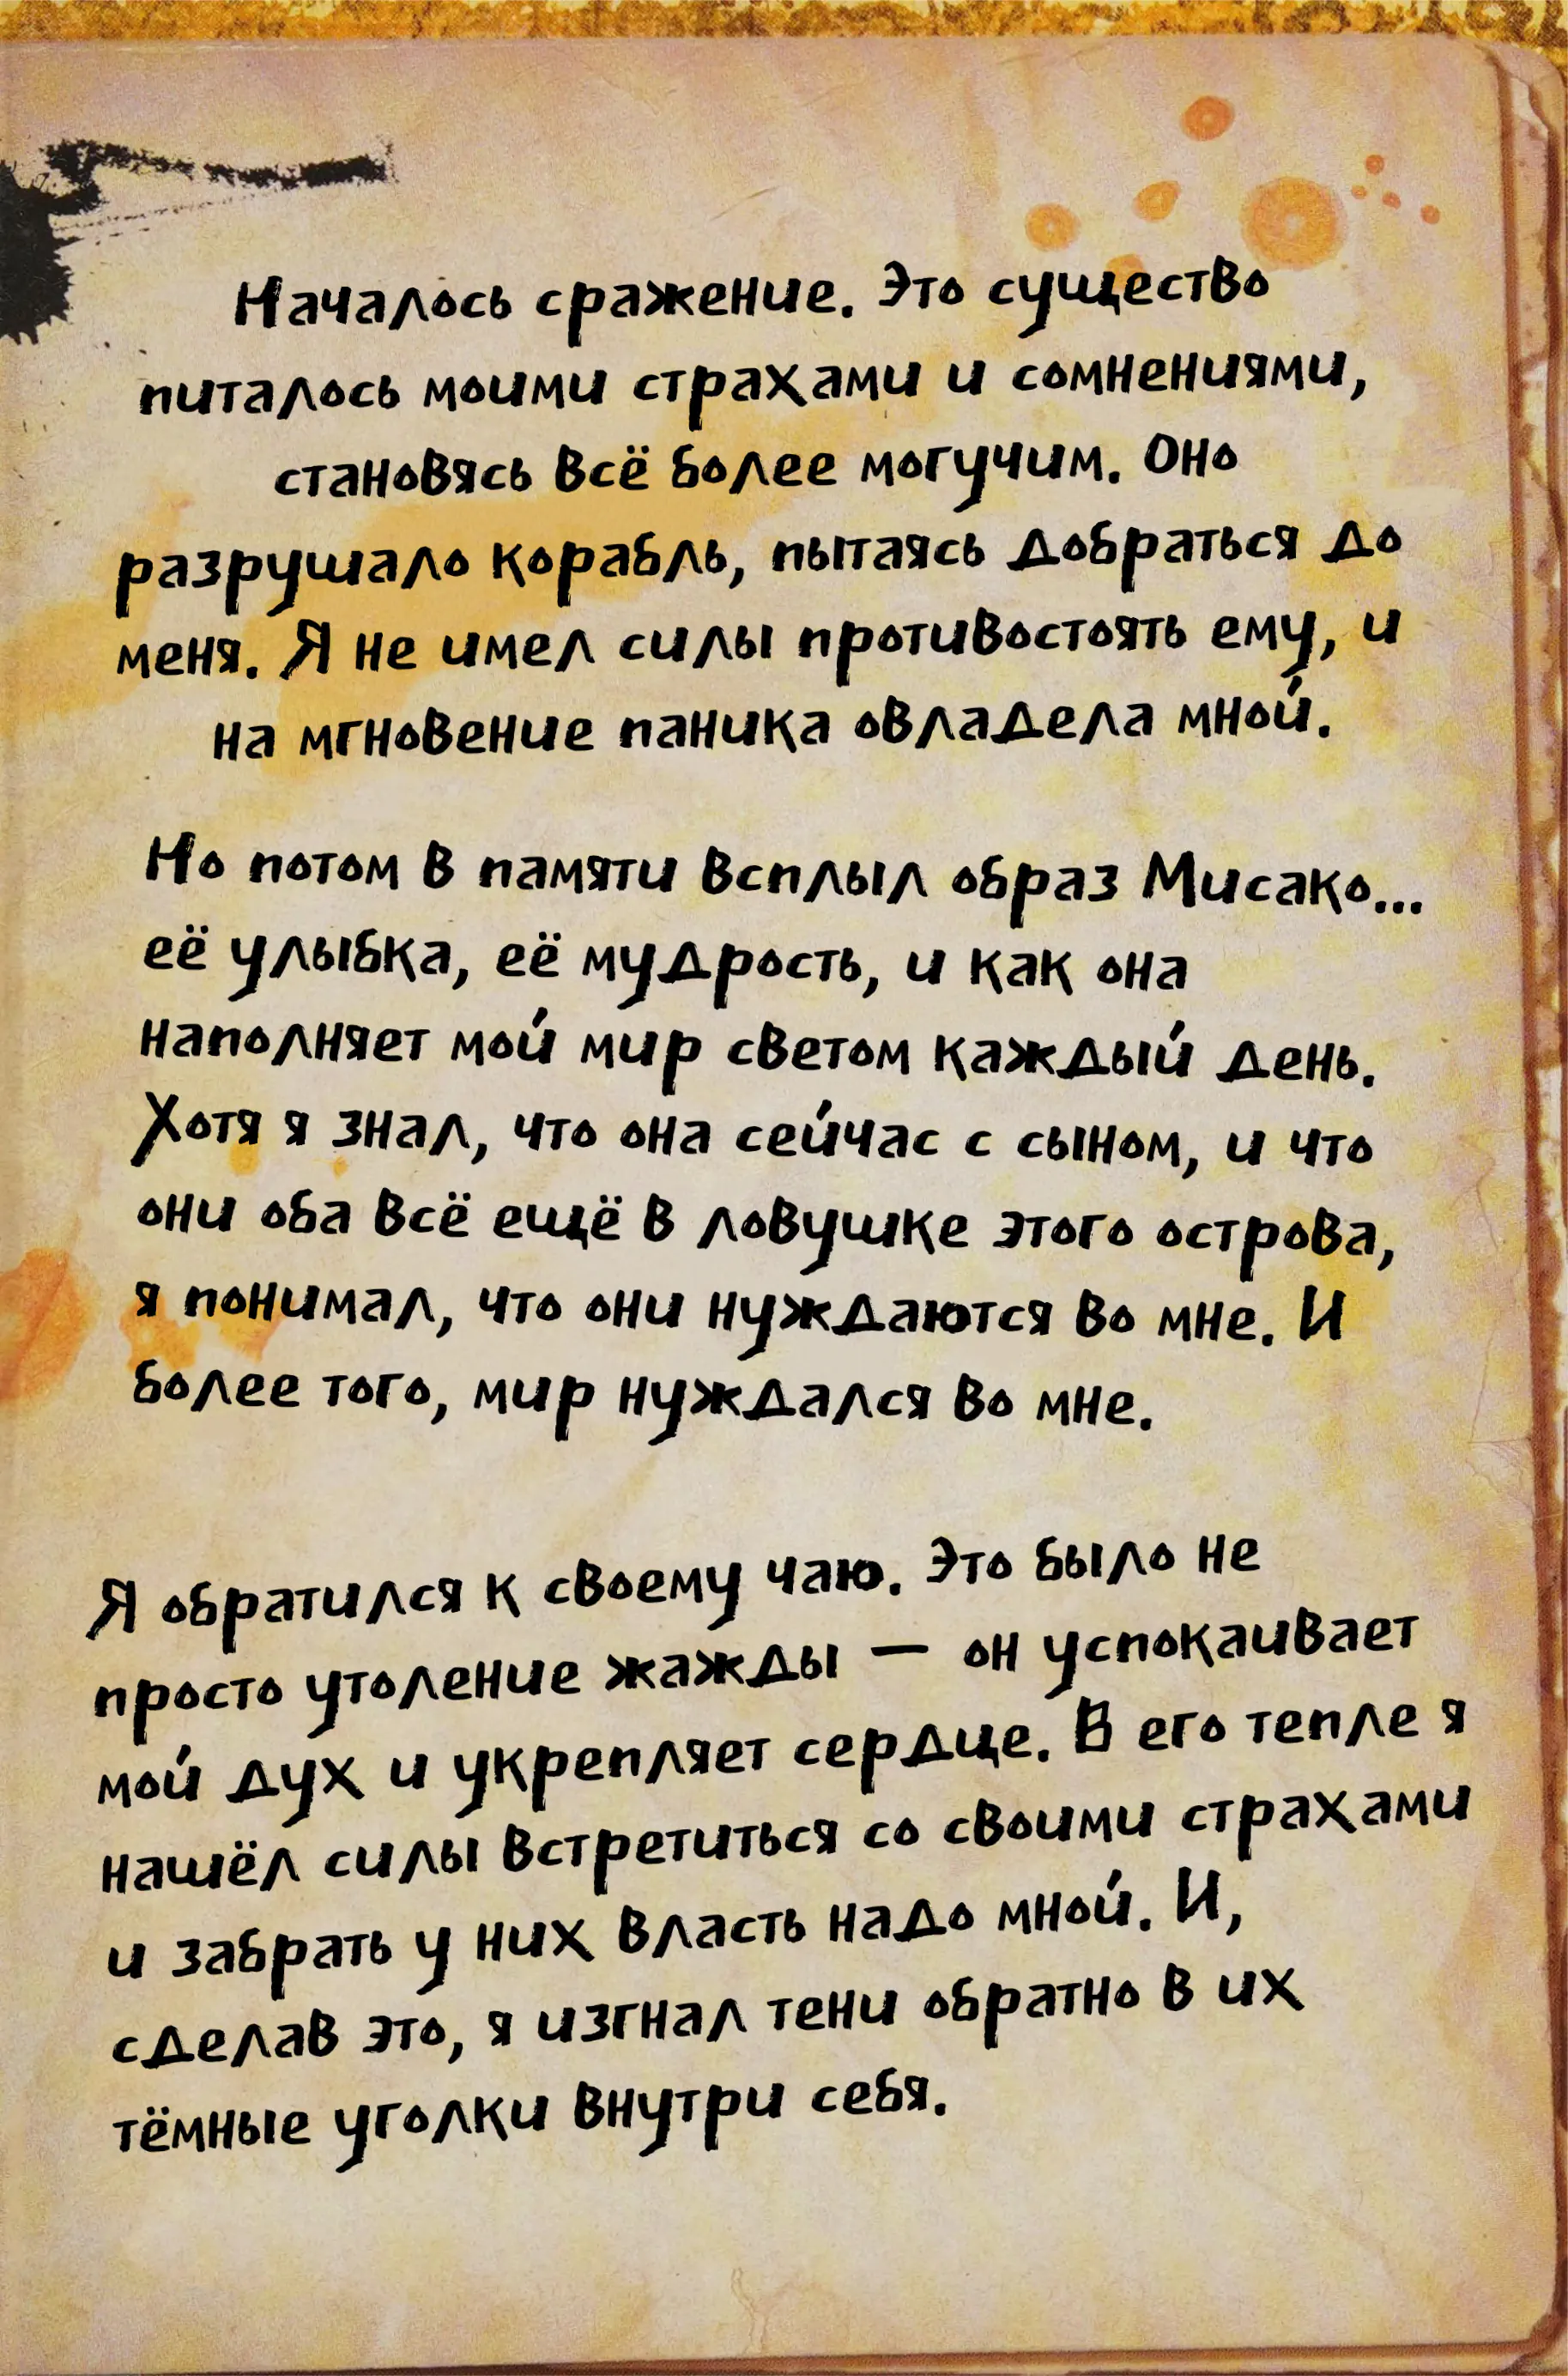 Началось сражение. Это существо
питалось моими страхами и сомнениями,
становясь всё более могучим. Оно
разрушало корабль, пытаясь добраться до
меня. Я не имел силы противостоять ему, и
на мгновение паника овладела мной.
Но потом в памяти всплыл образ Мисако...
её улыбка, её мудрость, и как она
наполняет мой мир светом каждый день.
Хотя я знал, что она сейчас с сыном, и что
они оба всё ещё в ловушке этого острова,
я понимал, что они нуждаются во мне. И
более того, мир нуждался во мне.
Я обратился к своему чаю. Это было не
просто утоление жажды — он успокаивает
мой дух и укрепляет сердце. В его тепле я
нашёл силы встретиться со своими страхами
и забрать у них власть надо мной. И,
сделав это, я изгнал тени обратно в их
тёмные уголки внутри себя.